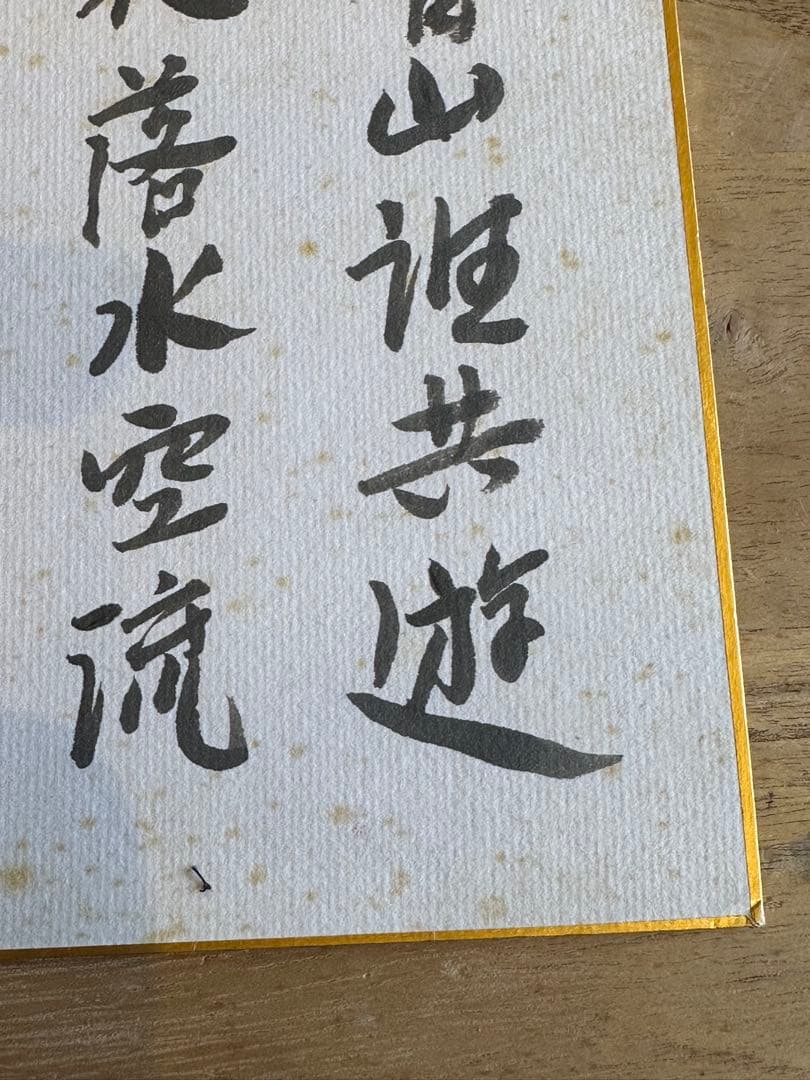 山誰共遊
落水空流